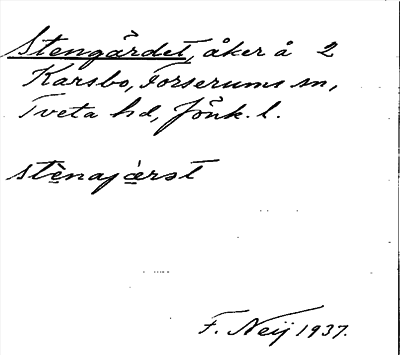 Stengärdet, åker å 2
Karsbo, Forserums sn,
Tveta hd, Jönk. l.
stènajærət
F. Neij 1937.